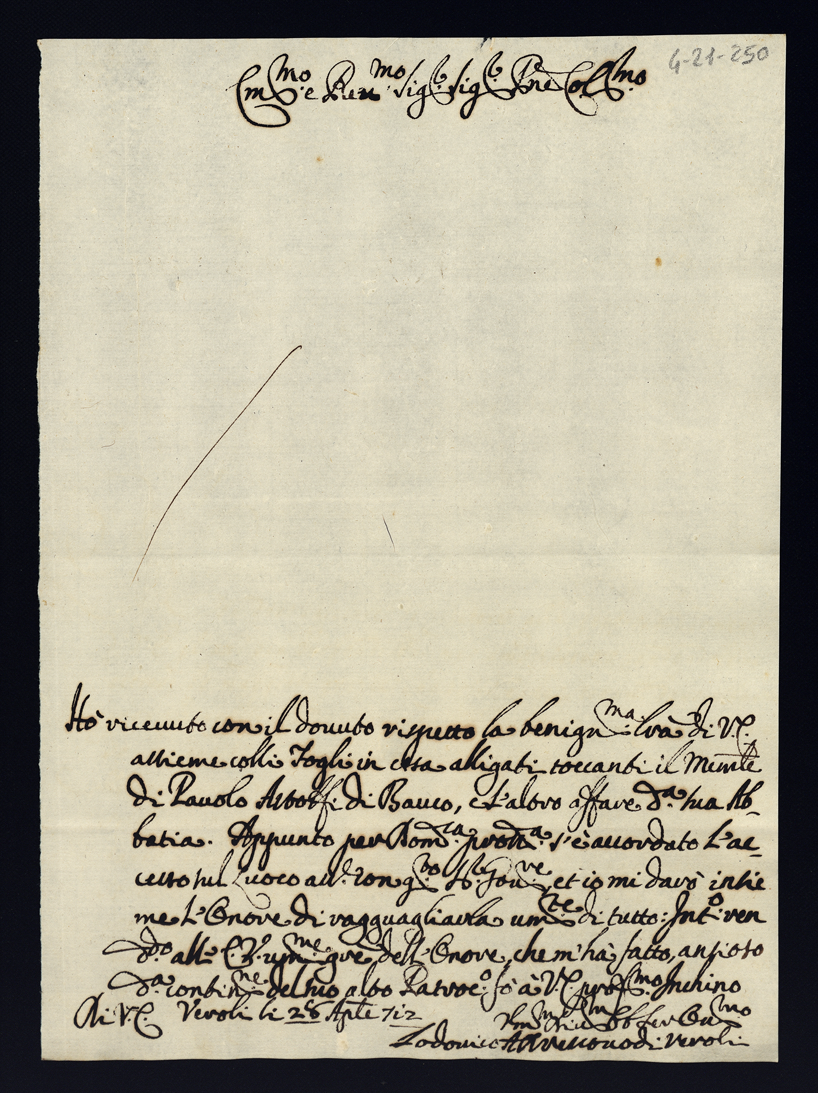 4-21-250
Em:mo e Rev:mo Sig:e Sig:e Pne Col:mo
Hò riceuuto con il douuto rispetto la benign:ma lrã di V.E.
assieme colli Fogli in essa alligati toccanti il Mem:le
di Pauolo Astolfi di Bauco, e l'altro affare d:a sua Ab-
batia. Appunto per Dom:ca pross:a s'è accordato l'ac-
cesso sul Luoco con q:to Sig:e Gou:re, et io mi darò insie
me l'Onore di ragguagliarla um:te di tutto: Int:o ren
do all' E.V. um:me gr̃e dell'Onore, che m'hà fatto, ansioso
d:a contin:ne del suo alto Patroc:o fò à V.E. prof:mo Inchino
Di V.E. Veroli li 26 Aple 712
Um:mo Deu:mo Obb: Ser Ou:mo
Lodouico Vescouo di Veroli